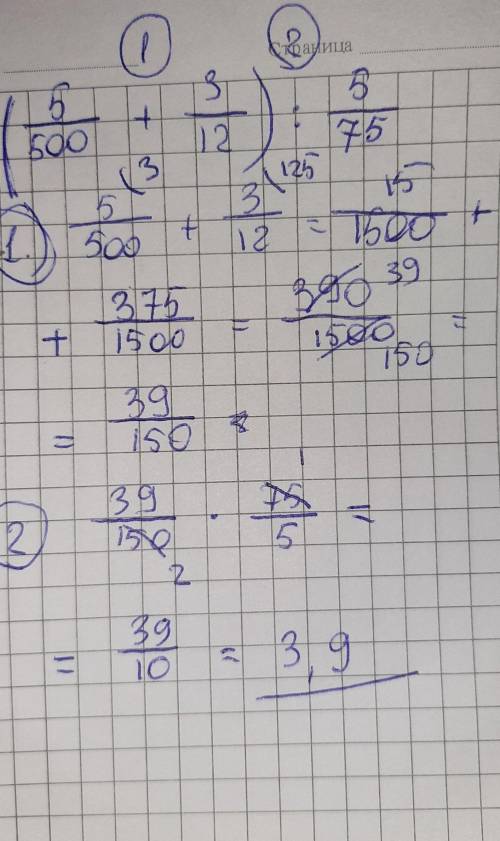 ① ②
Страница
(5/500 + 3/12) : 5/75
1. 5/500 (3 + 3/12 (125 = 15/1500 +
+ 375/1500 = 390/1500 39 150 =
= 39/150
2 39/150 2 · 75/5 1 =
= 39/10 = 3,9